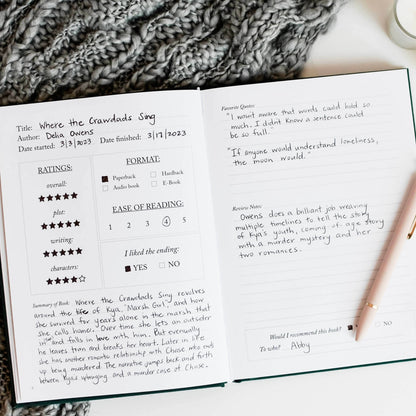 Title: Where the Crawdads Sing
Author: Delia Owens
Date started: 3/3/2023 Date finished: 3/17/2023
RATINGS:
overall:
★★★★★
plot:
★★★★★
writing:
★★★★★
characters:
★★★★☆
FORMAT:
Paperback Hardback
Audio book E-Book
EASE OF READING:
1 2 3 4 5
I liked the ending:
YES NO
Summary of Book: Where the Crawdads Sing revolves
around the life of Kya, "Marsh Girl," and how
she survived for years alone in the marsh that
she calls home. Over time she lets an outsider
in and falls in love with him. But eventually
he leaves town and breaks her heart. Later in life
she has another romantic relationship with Chase who ends
up being murdered. The narrative jumps back and forth
between Kyas upbringing and a murder case of Chase.
Favorite Quotes:
"I wasnt aware that words could hold so
much. I didnt know a sentence could
be so full."
"If anyone would understand loneliness,
the moon would."
Review/Notes:
Owens does a brilliant job weaving
multiple timelines to tell the story
of Kya's youth, coming of age story
with a murder mystery and her
two romances.
Would I recommend this book? NO
To who? Abby